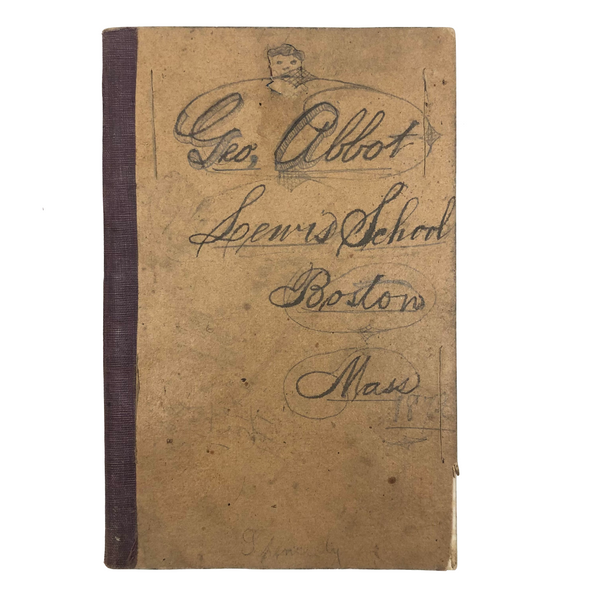 Geo, Abbot
Lewis School
Boston
Mass